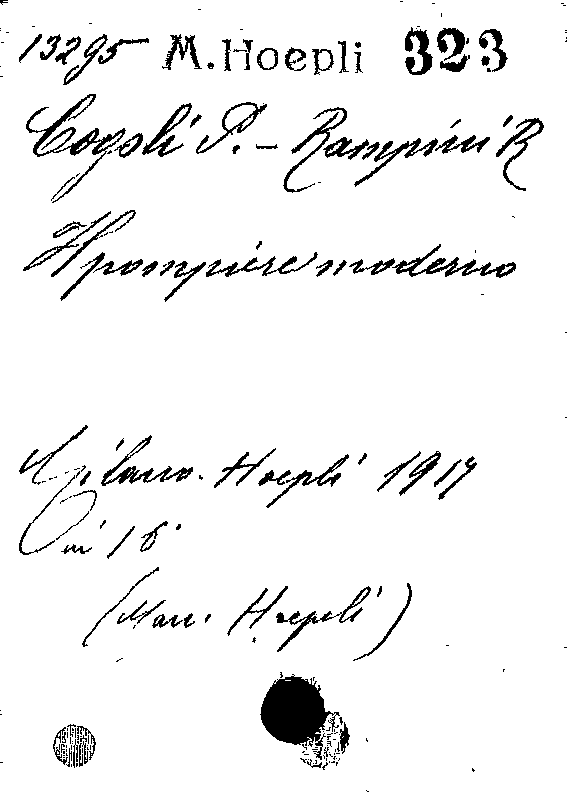 13295 M. Hoepli 323
Cogoli P. - Rampini R
Il pompiere moderno
Milano. Hoepli 1917
in 16°
(Man. Hoepli)